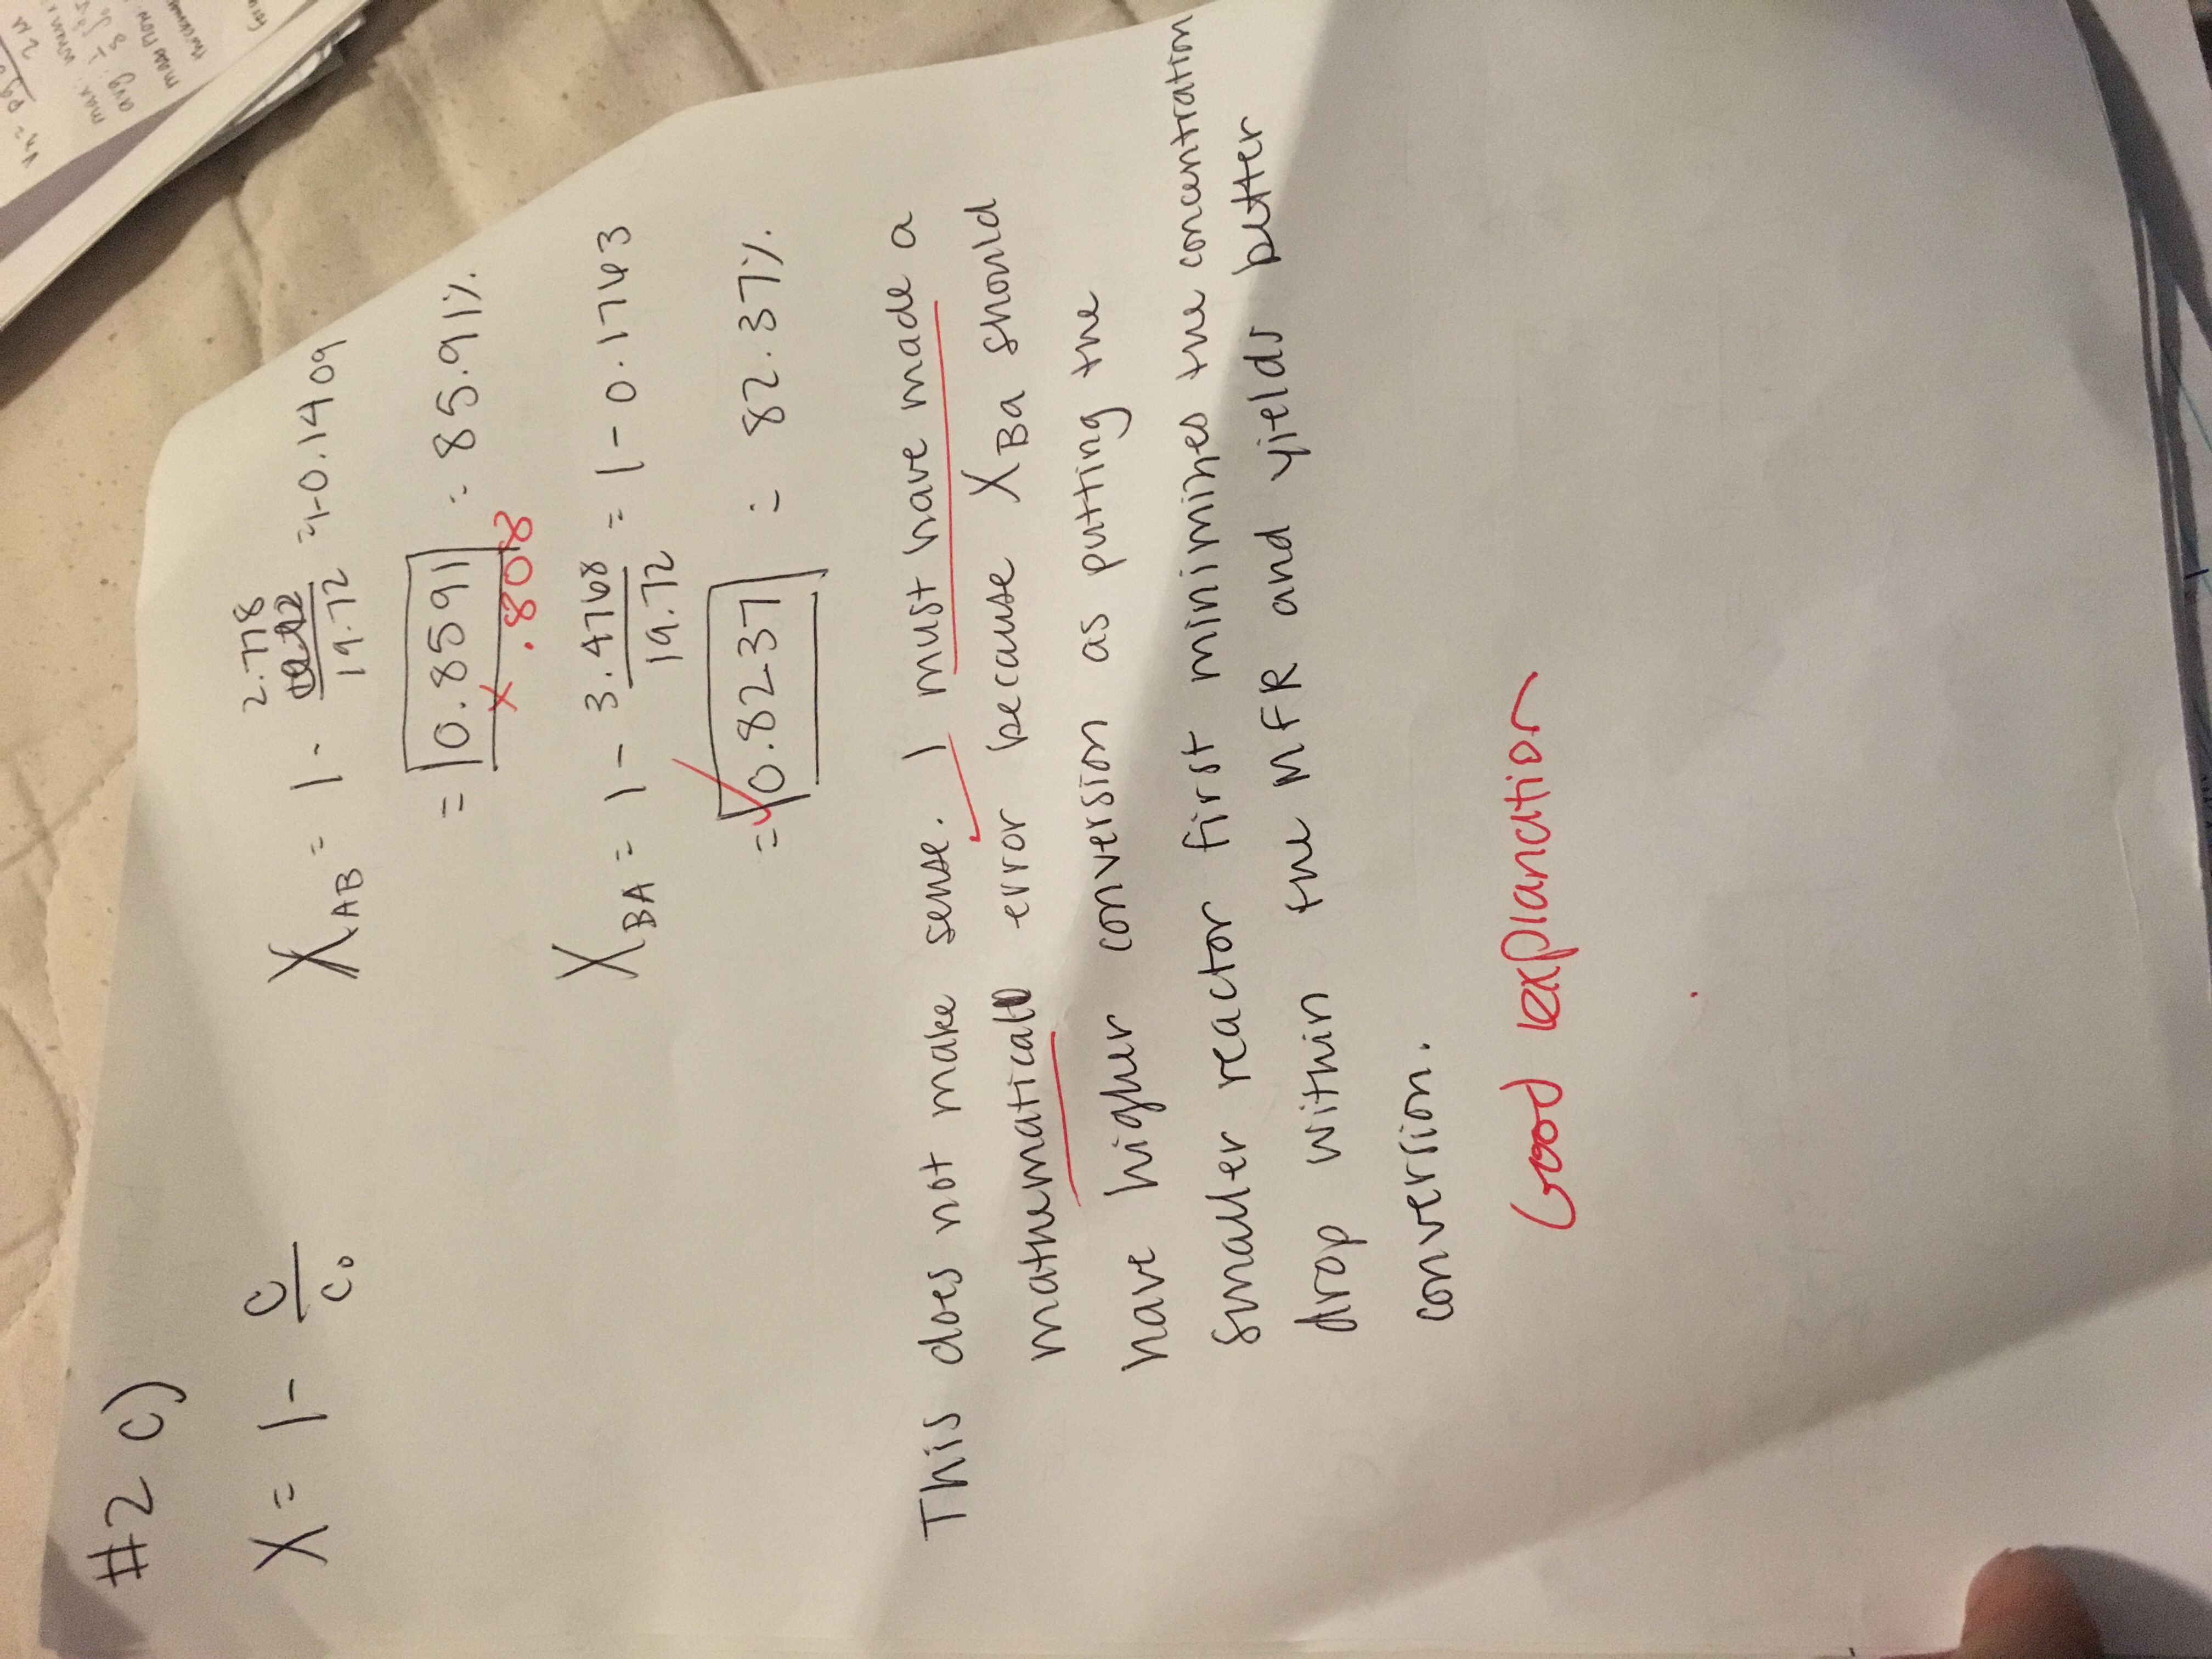 #2 c)
X = 1 - C / C₀
X_AB = 1 - 2.778 / 19.72 = 1-0.1409
= 0.8591 = 85.91%
× .808
X_BA = 1 - 3.4768 / 19.72 = 1 - 0.1763
= 0.8237 = 82.37%
✓
This does not make sense. I must have made a
mathematical error because X_Ba should
have higher conversion as putting the
smaller reactor first minimizes the concentration
drop within the MFR and yields better
conversion.
Good explanation
2μ
max: when
avg: 1/δ ∫
mass flow